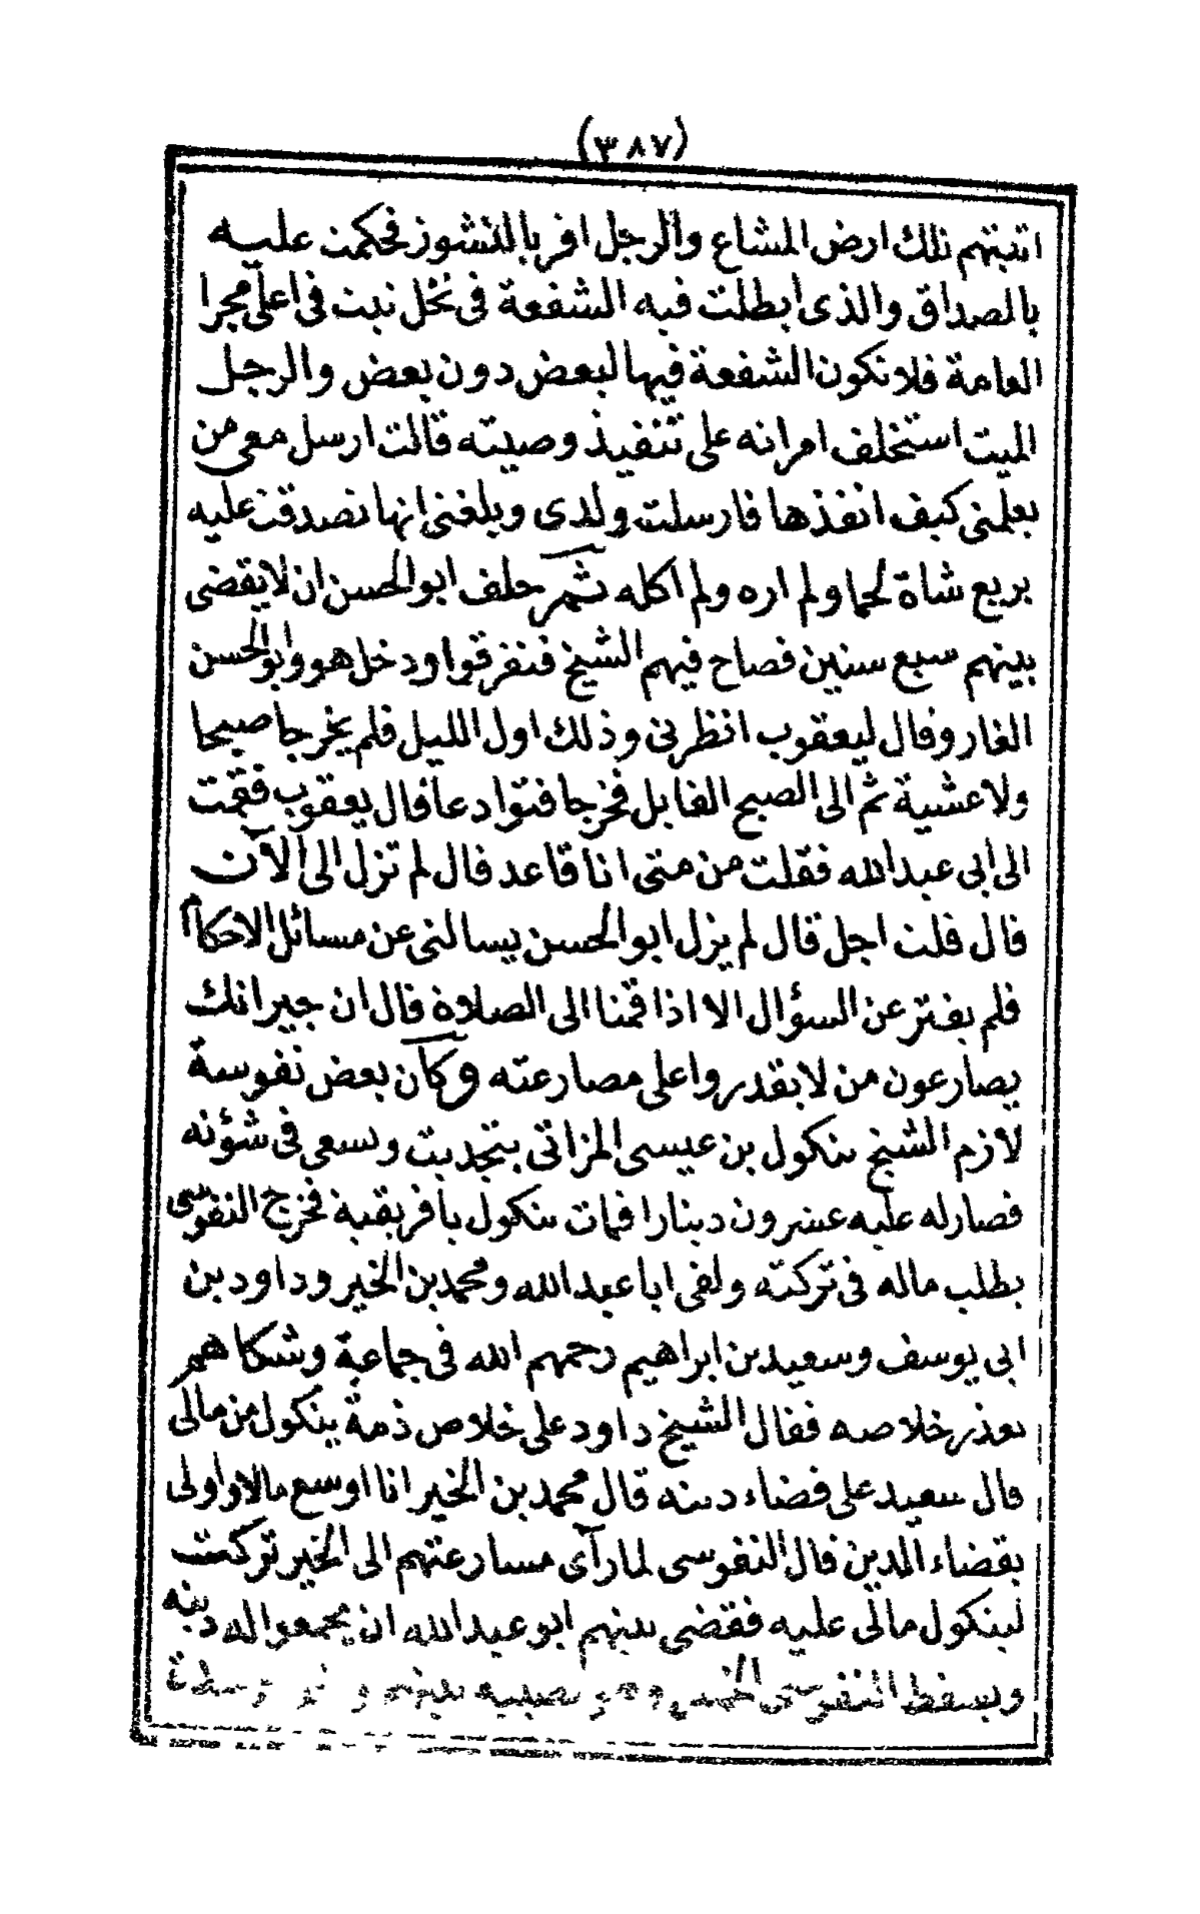 (٣٨٧)
اتتبتهم تلك ارض المشاع والرجل اقر بالنشوز فحكمت عليه
بالصداق والذى ابطلت فيه الشفعة فى نخل نبت فى اعلى مجرا
العامة فلا تكون الشفعة فيها لبعض دون بعض والرجل
الميت استخلف امراته على تنفيذ وصيته قالت ارسل معى من
يعلمنى كيف انفذها فارسلت ولدى وبلغنى انها تصدقت عليه
بربع شاة لحما ولم اره ولم اكله ثم حلف ابو الحسن ان لا يقضى
بينهم سبع سنين فصاح فيهم الشيخ فتفرقوا ودخل هو وابو الحسن
الغار وقال ليعقوب انظرنى وذلك اول الليل فلم يخرجا صبحا
ولا عشية ثم الى الصبح القابل فخرجا فتوادعا قال يعقوب فقمت
الى ابى عبد الله فقلت من متى انا قاعد قال لم تزل الى الآن
قال قلت اجل قال لم يزل ابو الحسن يسالنى عن مسائل الاحكام
فلم يفتر عن السؤال الا اذا قمنا الى الصلاة قال ان جيرانك
يصارعون من لا يقدروا على مصارعته وكان بعض نفوسة
لازم الشيخ ينكول بن عيسى المزاتى بتجديت وسعى فى شؤنه
فصار له عليه عشرون دينارا فمات ينكول بافريقية فخرج النفوسى
يطلب ماله فى تركته ولقى ابا عبد الله ومحمد بن الخير وداود بن
ابى يوسف وسعيد بن ابراهيم رحمهم الله فى جماعة وشكا هم
تعذر خلاصه فقال الشيخ داود على خلاص ذمة ينكول من مالى
قال سعيد على قضاء دينه قال محمد بن الخير انا اوسع مالا واولى
بقضاء الدين قال النفوسى لما رآى مسارعتهم الى الخير تركت
لينكول مالى عليه فقضى بينهم ابو عبد الله ان يجمعوا له دينه
ويسقط النفوسى الخمس وهو نصيبه بينهم و